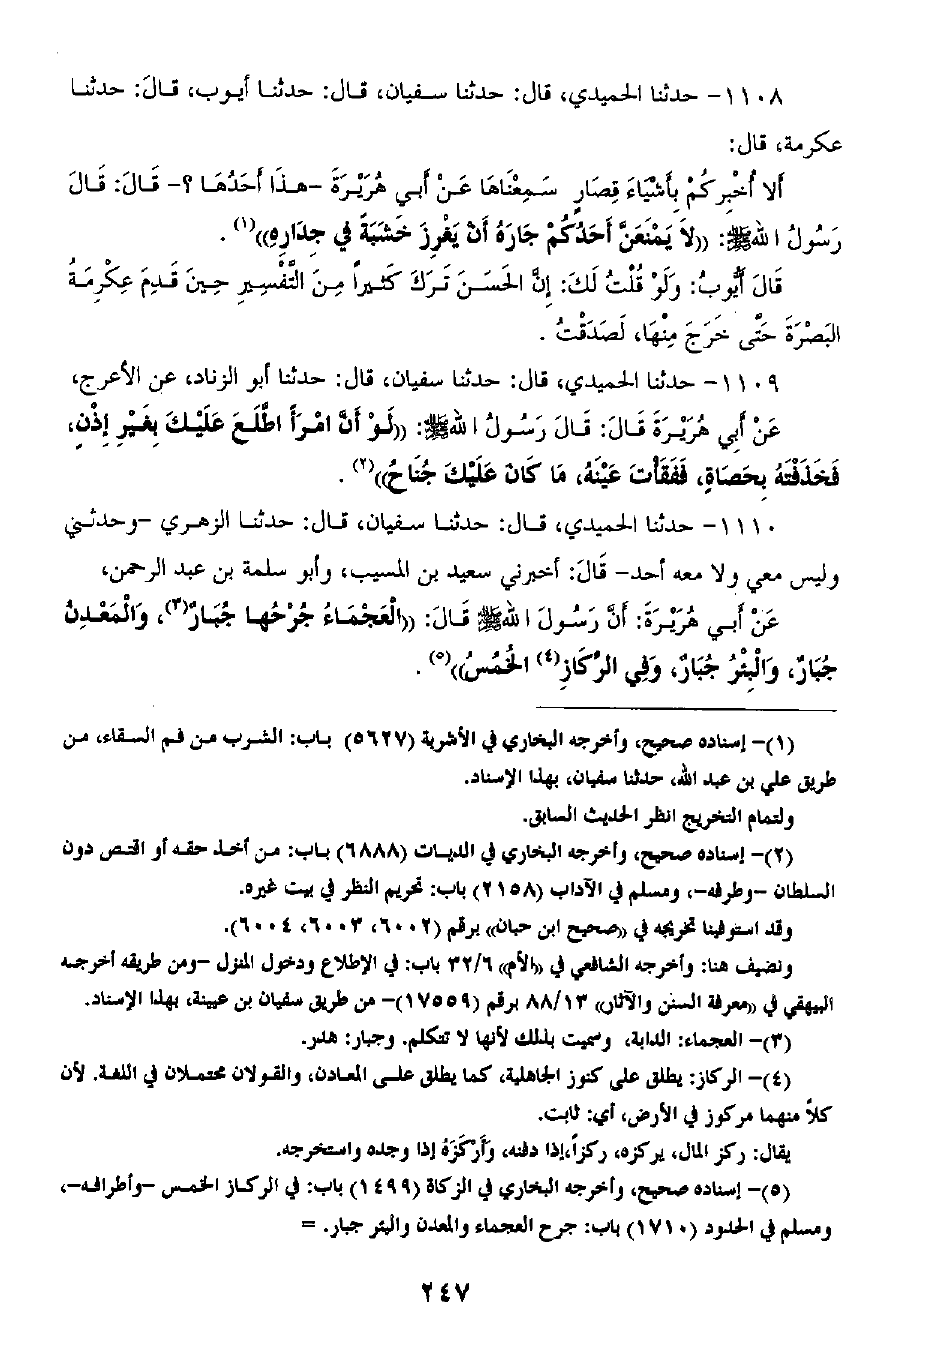 ١١٠٨- حدثنا الحميدي، قال: حدثنا سفيان، قال: حدثنا أيوب، قالَ: حدثنا
عكرمة، قال:
ألا أُخْبِركُمْ بِأَشْيَاءَ قِصَارٍ سَمِعْنَاهَا عَنْ أبي هُرَيْرَةَ -هذَا أحَدُهَا ؟- قَالَ: قَالَ
رَسُولُ اللهﷺ: ((لاَ يَمْنَعَنَّ أَحَدُكُمْ جَارَهُ أَنْ يَغْرِزَ خَشَبَةً فِي جِدَارِهِ))(١) .
قَالَ أَيُّوبُ: وَلَوْ قُلْتُ لَكَ: إنَّ الحَسَنَ تَرَكَ كَثيراً مِنَ التَّفْسِيرِ حِينَ قَدِمَ عِكْرِمَةُ
البَصْرَةَ حَتَّى خَرَجَ مِنْهَا، لَصَدَقْتُ .
١١٠٩- حدثنا الحميدي، قال: حدثنا سفيان، قال: حدثنا أبو الزناد، عن الأعرج،
عَنْ أبي هُرَيْرَةَ قَالَ: قَالَ رَسُولُ اللهﷺ: ((لَوْ أَنَّ امْرَأً اطَّلَعَ عَلَيْكَ بِغَيْرِ إِذْنٍ،
فَخَذَفْتَهُ بِحَصَاةٍ، فَفَقَأْتَ عَيْنَهُ، مَا كَانَ عَلَيْكَ جُنَاحٌ))(٢) .
١١١٠- حدثنا الحميدي، قال: حدثنا سفيان، قال: حدثنا الزهري -وحدثني
وليس معي ولا معه أحد- قالَ: أخبرني سعيد بن المسيب، وأبو سلمة بن عبد الرحمن،
عَنْ أبي هُرَيْرَةَ: أنَّ رَسُولَ اللهﷺ قَالَ: ((الْعَجْمَاءُ جُرْحُهَا جُبَارٌ(٣)، وَالْمَعْدِنُ
جُبَارٌ، وَالْبِئْرُ جُبَارٌ، وَفِي الرِّكَازِ(٤) الخُمُسُ))(٥) .
(١)- إسناده صحيح، وأخرجه البخاري في الأشربة (٥٦٢٧) باب: الشرب من فم السقاء، من
طريق علي بن عبد الله، حدثنا سفيان، بهذا الإسناد.
ولتمام التخريج انظر الحديث السابق.
(٢)- إسناده صحيح، وأخرجه البخاري في الديات (٦٨٨٨) باب: من أخذ حقه أو اقتص دون
السلطان -وطرفه-، ومسلم في الآداب (٢١٥٨) باب: تحريم النظر في بيت غيره.
وقد استوفينا تخريجه في ((صحيح ابن حبان)) برقم (٦٠٠٢، ٦٠٠٣، ٦٠٠٤).
ونضيف هنا: وأخرجه الشافعي في ((الأم)) ٣٢/٦ باب: في الإطلاع ودخول المنزل -ومن طريقه أخرجه
البيهقي في ((معرفة السنن والآثار)) ٨٨/١٣ برقم (١٧٥٥٩)- من طريق سفيان بن عيينة، بهذا الإسناد.
(٣)- العجماء: الدابة، وسميت بذلك لأنها لا تتكلم. وجبار: هدر.
(٤)- الركاز: يطلق على كنوز الجاهلية، كما يطلق على المعادن، والقولان محتملان في اللغة. لأن
كلاً منهما مركوز في الأرض، أي: ثابت.
يقال: ركز المال، يركزه، ركزاً،إذا دفنه، وَأَرْكَزَهُ إذا وجده واستخرجه.
(٥)- إسناده صحيح، وأخرجه البخاري في الزكاة (١٤٩٩) باب: في الركاز الخمس -وأطرافه-،
ومسلم في الحدود (١٧١٠) باب: جرح العجماء والمعدن والبئر جبار. =
٢٤٧